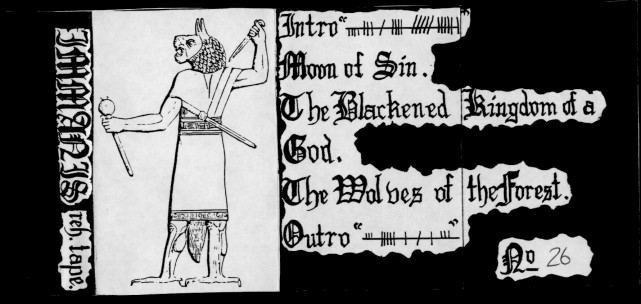 reh. tape.
Intro “ ”
Moon of Sin.
The Blackened Kingdom of a
God.
The Wolves of the Forest.
Outro “ ”
No 26